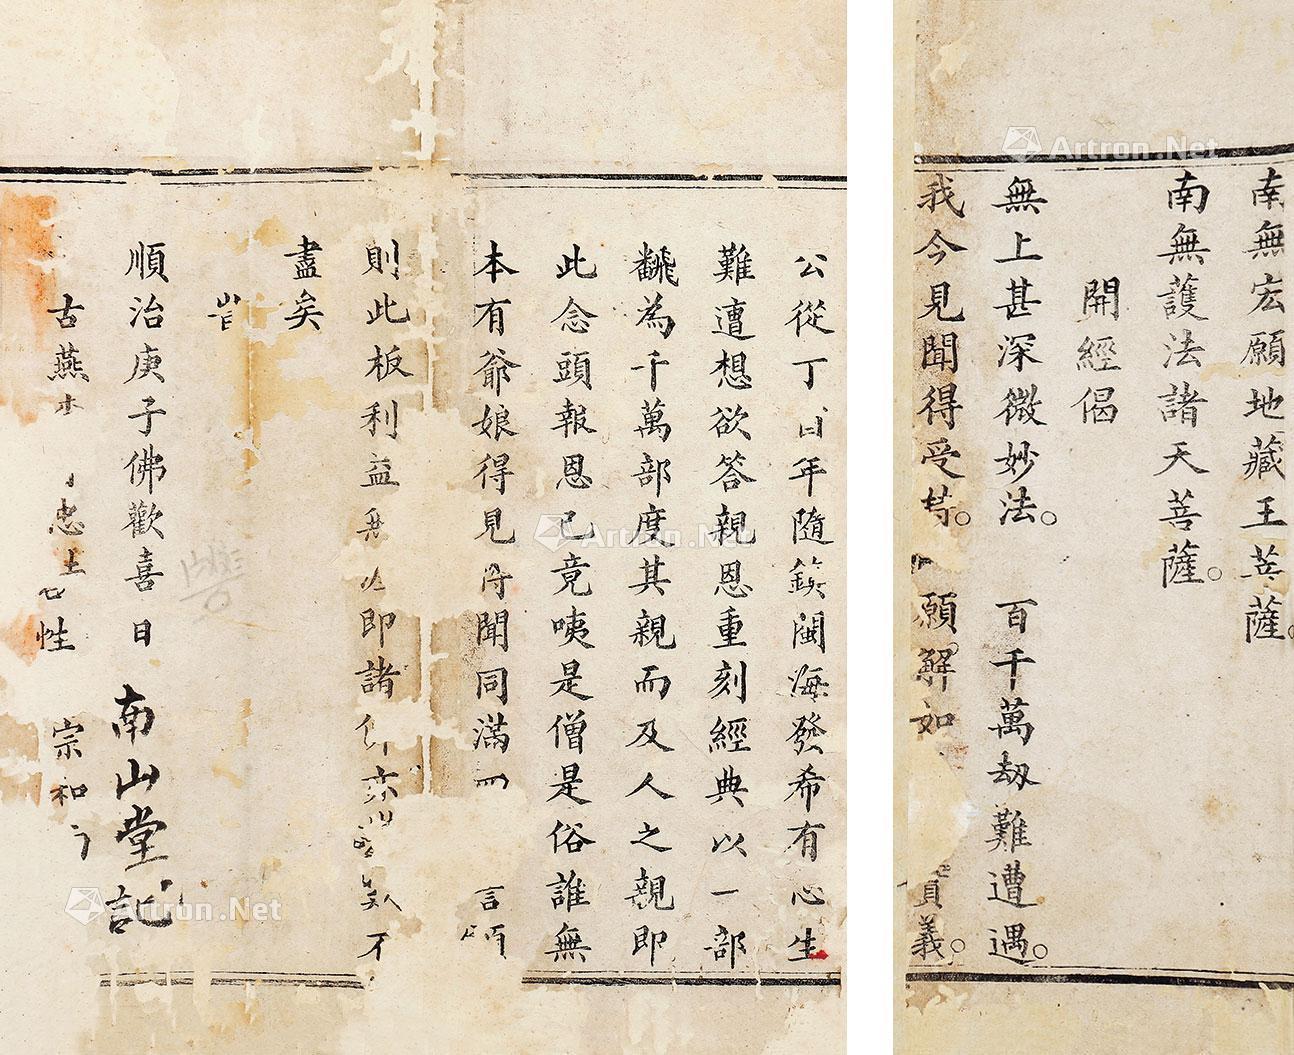 南無宏願地藏王菩薩。
南無護法諸天菩薩。
開經偈
無上甚深微妙法。百千萬劫難遭遇。
我今見聞得受持。願解如義。
公從丁年隨鎮閩海發希有心生
難遭想欲答親恩重刻經典以一部
飜為千萬部度其親而及人之親即
此念頭報恩已竟咦是僧是俗誰無
本有爺娘得見得聞同滿言
則此板利益無即諸亦不
盡矣
旹
順治庚子佛歡喜日 南山堂記
古燕忠性宗和
Artron.Net
Artron.Net
Artron.Net